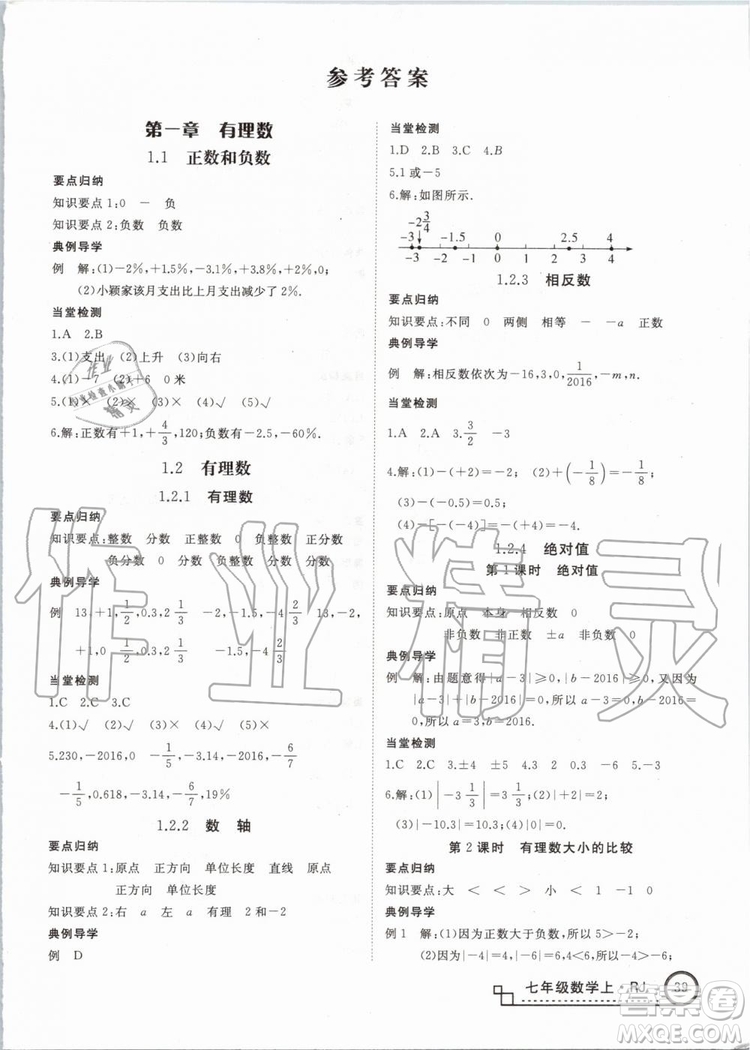 参考答案
第一章 有理数
1.1 正数和负数
要点归纳
知识要点1:0 － 负
知识要点2:负数 负数
典例导学
例 解:(1)－2%,＋1.5%,－3.1%,＋3.8%,＋2%,0;
(2)小颖家该月支出比上月支出减少了2%.
当堂检测
1.A 2.B
3.(1)支出 (2)上升 (3)向右
4.(1)－7 (2)6 0米
5.(1)× (2)× (3)× (4)√ (5)√
6.解:正数有＋1,＋4/3,120;负数有－2.5,－60%.
1.2 有理数
1.2.1 有理数
要点归纳
知识要点:整数 分数 正整数 0 负整数 正分数
负分数 0 分数 整数 0
典例导学
例 13,＋1 1/2,0.3,2 1/3 －2,－1.5,－4 1/3 13,－2,
＋1,0 1/2,0.3,2 1/3 －1.5,－4 1/3
当堂检测
1.C 2.C 3.C
4.(1)√ (2)√ (3)× (4)× (5)×
5.230,－2016,0 －1/5,－3.14,－2016,－6/7
－1/5,0.618,－3.14,－6/7,19%
1.2.2 数 轴
要点归纳
知识要点1:原点 正方向 单位长度 直线 原点
正方向 单位长度
知识要点2:右 a 左 a 有理 2和－2
典例导学
例 D
当堂检测
1.D 2.B 3.C 4.B
5.1或－5
6.解:如图所示.
－2 3/4
－3 －2 －1 0 1 2 2.5 3 4
1.2.3 相反数
要点归纳
知识要点:不同 0 两侧 相等 － －a 正数
典例导学
例 解:相反数依次为－16,3,0,1/2016,－m,n.
当堂检测
1.A 2.A 3.3/2 －3
4.解:(1)－(＋2)＝－2; (2)＋(－1/8)＝－1/8;
(3)－(－0.5)＝0.5;
(4)－[－(－4)]＝－(＋4)＝－4.
1.2.4 绝对值
第1课时 绝对值
要点归纳
知识要点:原点 本身 相反数 0
非负数 非正数 ±a 非负数 0
典例导学
例 解:由题意得|a－3|≥0,|b－2016|≥0,所以
|a－3|＝|b－2016|＝0,所以a＝3,b＝2016.
当堂检测
1.C 2.C 3.±4 ±5 4.3 －3,0 5.－3
6.解:(1)|－3 1/3|＝3 1/3; (2)|＋2|＝2;
(3)|－10.3|＝10.3;(4)|0|＝0.
第2课时 有理数大小的比较
要点归纳
知识要点:大 ＜ ＜ ＞ 小 －1 0
典例导学
例1 解:(1)因为正数大于负数,所以5＞－2;
(2)因为|－4|＝4,|－6|＝6,4＜6,所以－4＞－6;
七年级数学上·RJ 39
作业精灵
答案圈
MXQE.COM